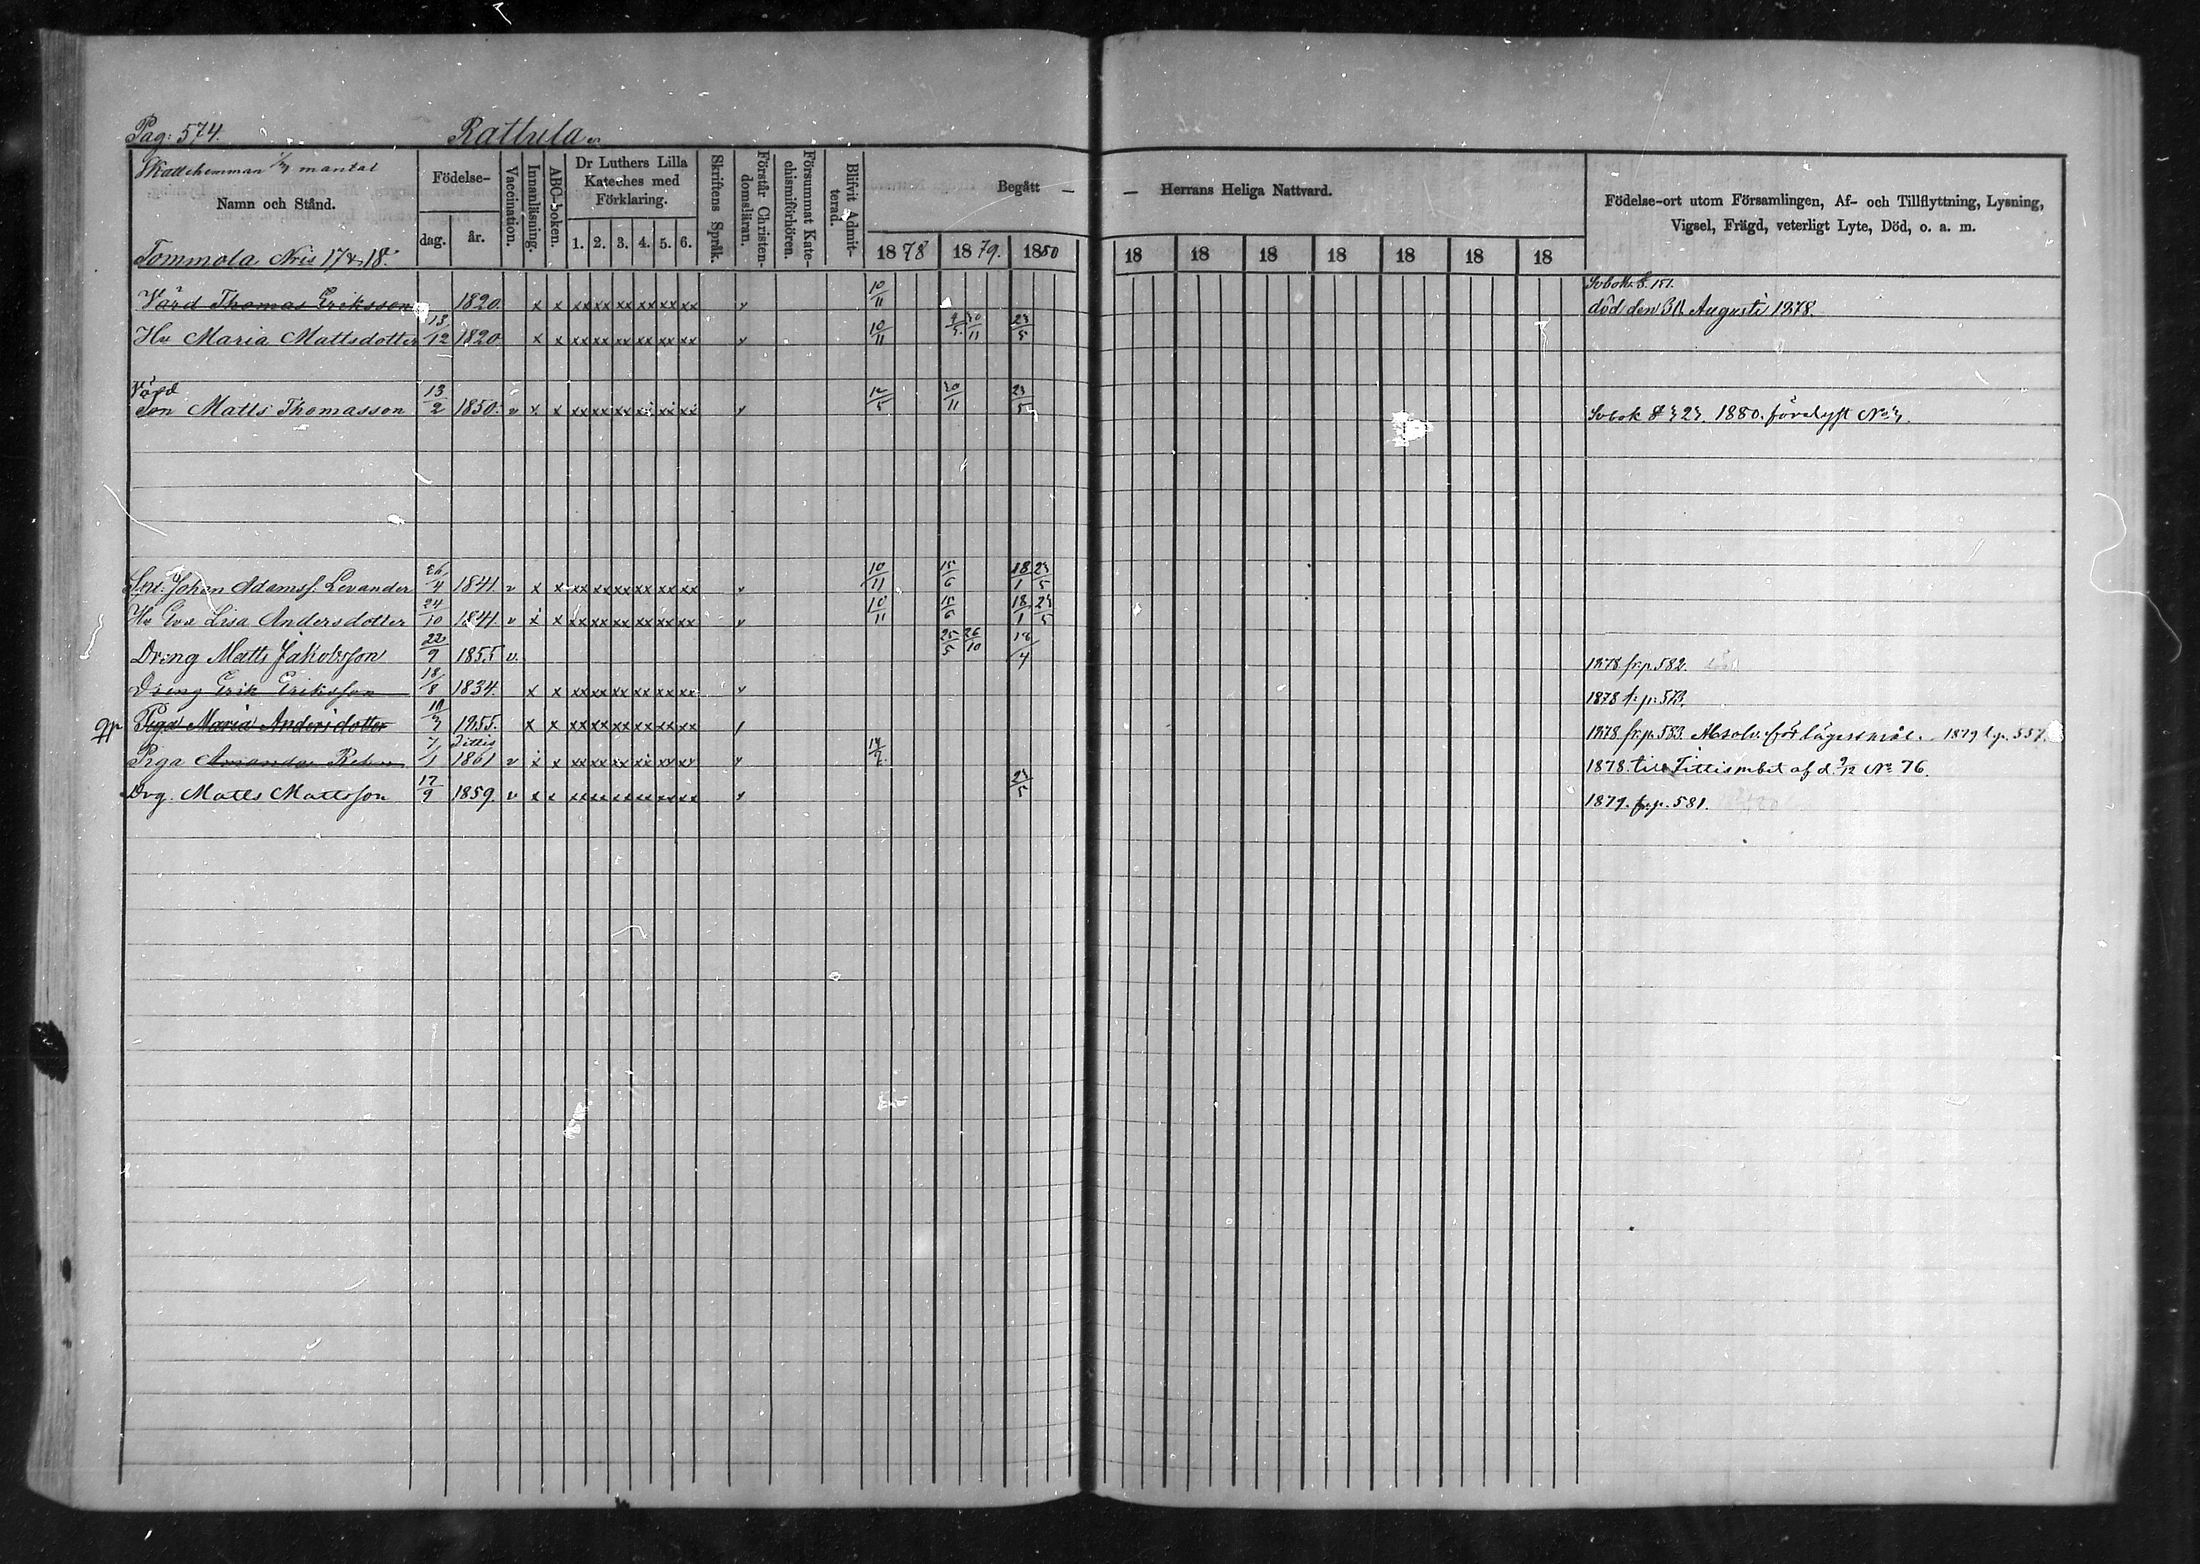 Pag: 574. Rattula
Skattehemman mantal
Namn och Stånd.
Tommola Nris 17 & 18.
Födelse-
dag. år.
Vaccination.
Innanläsning.
ABC-boken.
Dr Luthers Lilla
Kateches med
Förklaring.
1. 2. 3. 4. 5. 6.
Skriftens Språk.
Förstår Christen-
domsläran.
Försummat Kate-
chismiförhören.
Blifvit Admit-
terad.
Begått — — Herrans Heliga Nattvard.
1878 1879. 1880 18 18 18 18 18 18 18
Födelse-ort utom Församlingen, Af- och Tillflyttning, Lysning,
Vigsel, Frägd, veterligt Lyte, Död, o. a. m.
Värd Thomas Eriksson 1820. x x xx xx xx xx xx xx v 10/11 död den 31 Augusti 1878.
Hu Maria Mattsdotter 13/12 1820 x x xx xx xx xx xx xx v 10/11 30/11 23/5
Värd
Son Matts Thomasson 13/2 1850. v x x xx xx xx xi xi xi v 12/5 30/11 23/5 1880. No
Johan Adamsf. Levander 26/4 1841. v x x xx xx xx xx xx xx v 10/11 15/6 18/1 23/5
Hu Eva Lisa Andersdotter 24/10 1844. v x x xx xx xx xx xx xx v 10/11 15/6 18/1 23/5
Dreng Matts Jakobsson 22/9 1855 v. 25/5 26/10 18/4 1878 fr.p. 582.
Dreng Erik Eriksson 18/8 1834. x x xx xx xx xx xx xx v 1878 t. p. 573.
Piga Maria Andersdotter 10/3 1855. x x xx xx xx xx xx xx 1878 fr.p. 583. Absolv. för lägersmål. 1879 t.p. 557.
Piga Amanda 7/1 1861 v x x xx xx xx xi xx xx v 1878 till Sittismbd af d. 9/12 No 76.
Drg. Matts Mattsson 17/9 1859. v x x xx xx xx xx xx xx v 23/5 1879. fr.p. 581.